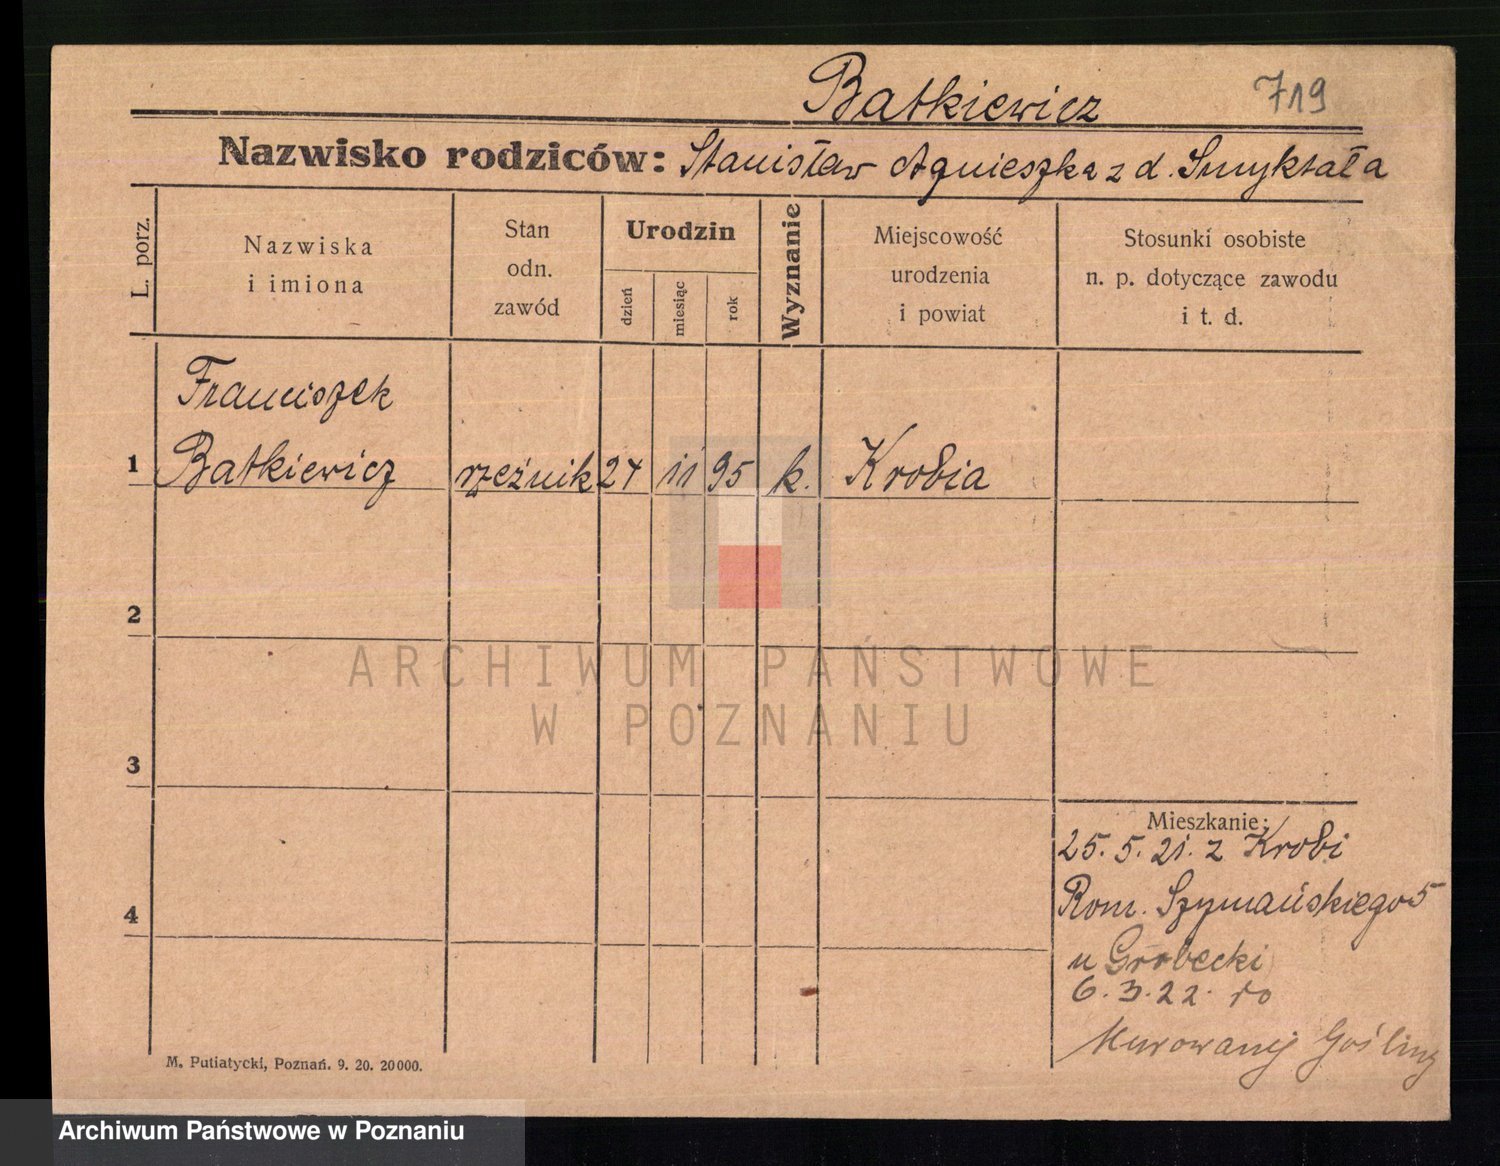 Batkiewicz 719
Nazwisko rodziców: Stanisław Agnieszka z d. Smyktała
L. porz.
Nazwiska
i imiona
Stan
odn.
zawód
Urodzin
dzień
miesiąc
rok
Wyznanie
Miejscowość
urodzenia
i powiat
Stosunki osobiste
n. p. dotyczące zawodu
i t. d.
Franciszek
1 Batkiewicz rzeźnik 24 11 95 k. Krobia
2
3
4
Mieszkanie:
25. 5. 21. z Krobi
Rom. Szymańskiego 5
u Grobecki
6. 3. 22. do
Murowanej Gośliny
M. Putiatycki, Poznań. 9. 20. 20000.
ARCHIWUM PAŃSTWOWE
W POZNANIU
Archiwum Państwowe w Poznaniu